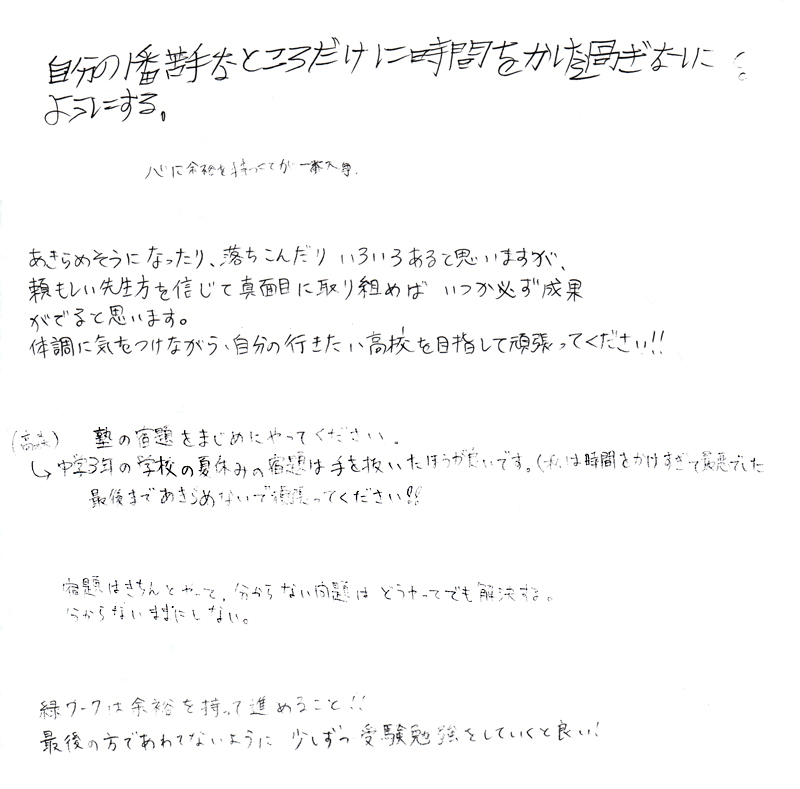 自分の1番苦手なところだけに時間をかけ過ぎないに
ようにする。
心に余裕を持つことが一番大事.
あきらめそうになったり、落ちこんだり いろいろあると思いますが、
頼もしい先生方を信じて真面目に取り組めば いつか必ず成果
がでると思います。
体調に気をつけながら、自分の行きたい高校を目指して頑張ってください!!
塾の宿題をまじめにやってください.
↳中学3年の学校の夏休みの宿題は手を抜いたほうが良いです。(私は時間をかけすぎて最悪でした
最後まであきらめないで頑張ってください!!
宿題はきちんとやって、分からない問題は どうやってでも解決する。
分からないままにしない。
緑ワークは余裕を持って進めること!!
最後の方であわてないように 少しずつ受験勉強をしていくと良い!